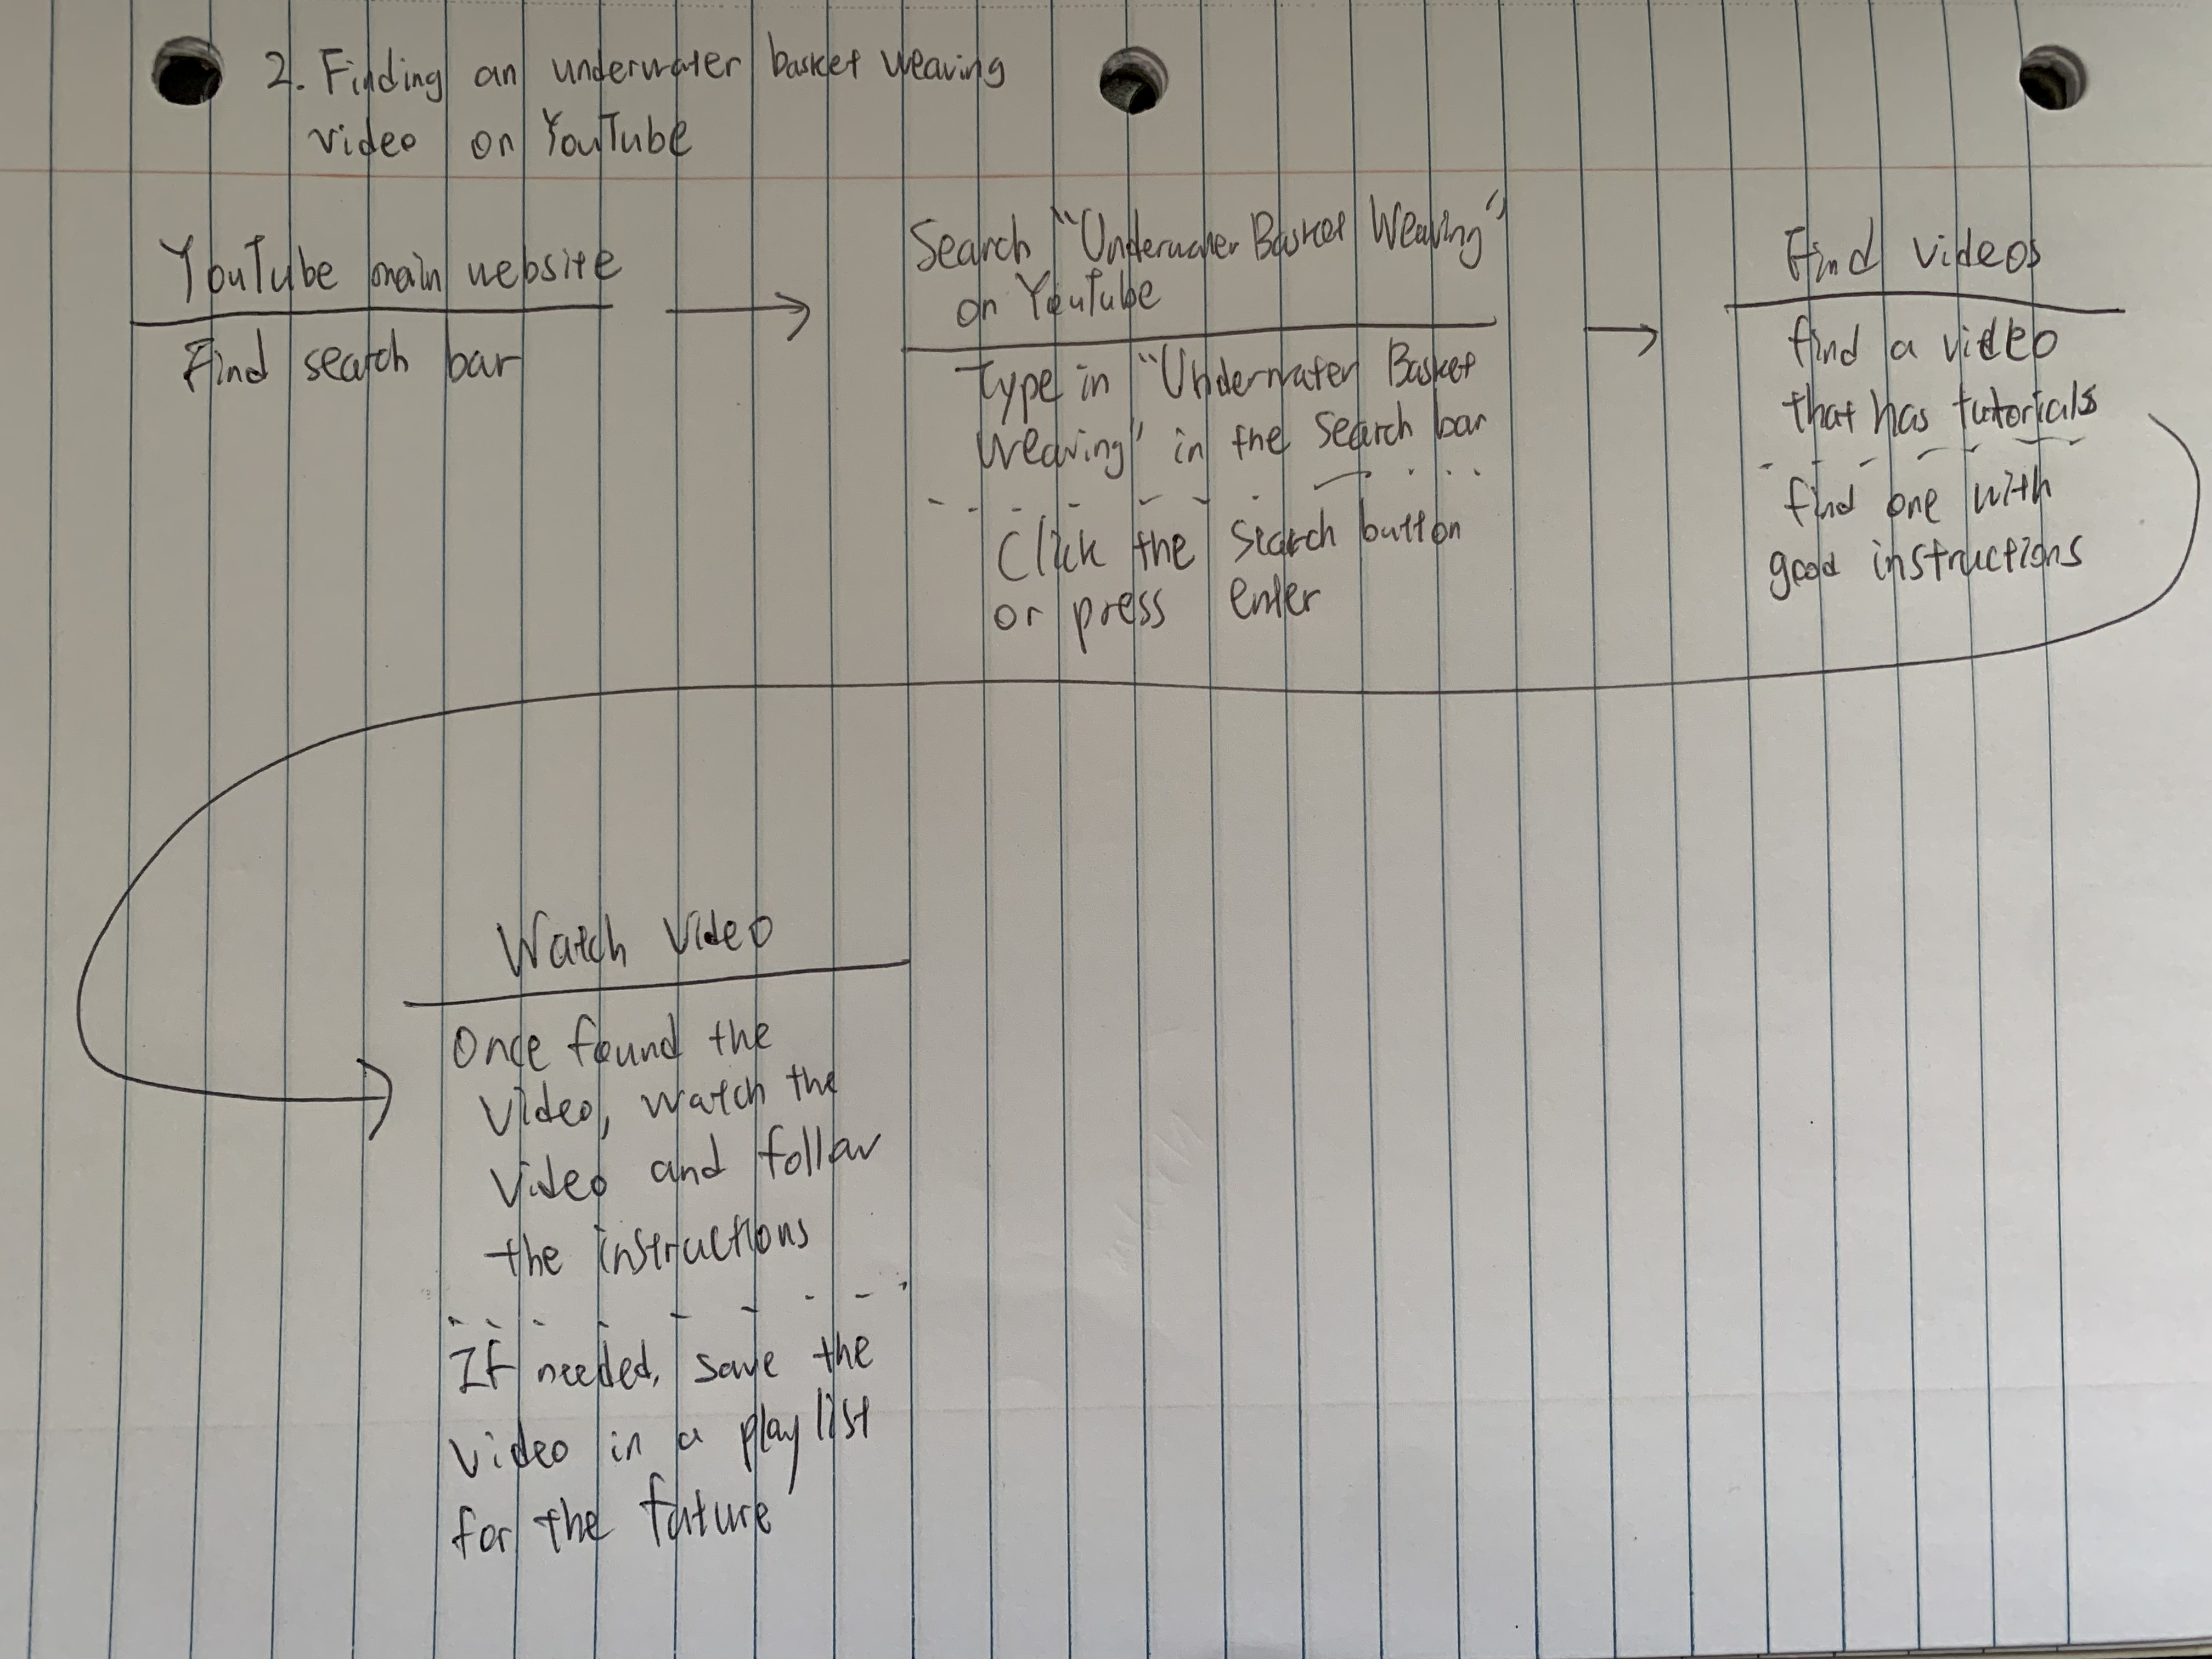 2. Finding an underwater basket weaving
video on YouTube
YouTube main website
Find search bar
Search "Underwater Basket Weaving"
on YouTube
Type in "Underwater Basket
Weaving" in the search bar
Click the search button
or press enter
Find videos
find a video
that has tutorials
find one with
good instructions
Watch video
Once found the
video, watch the
video and follow
the instructions
If needed, save the
video in a playlist
for the future